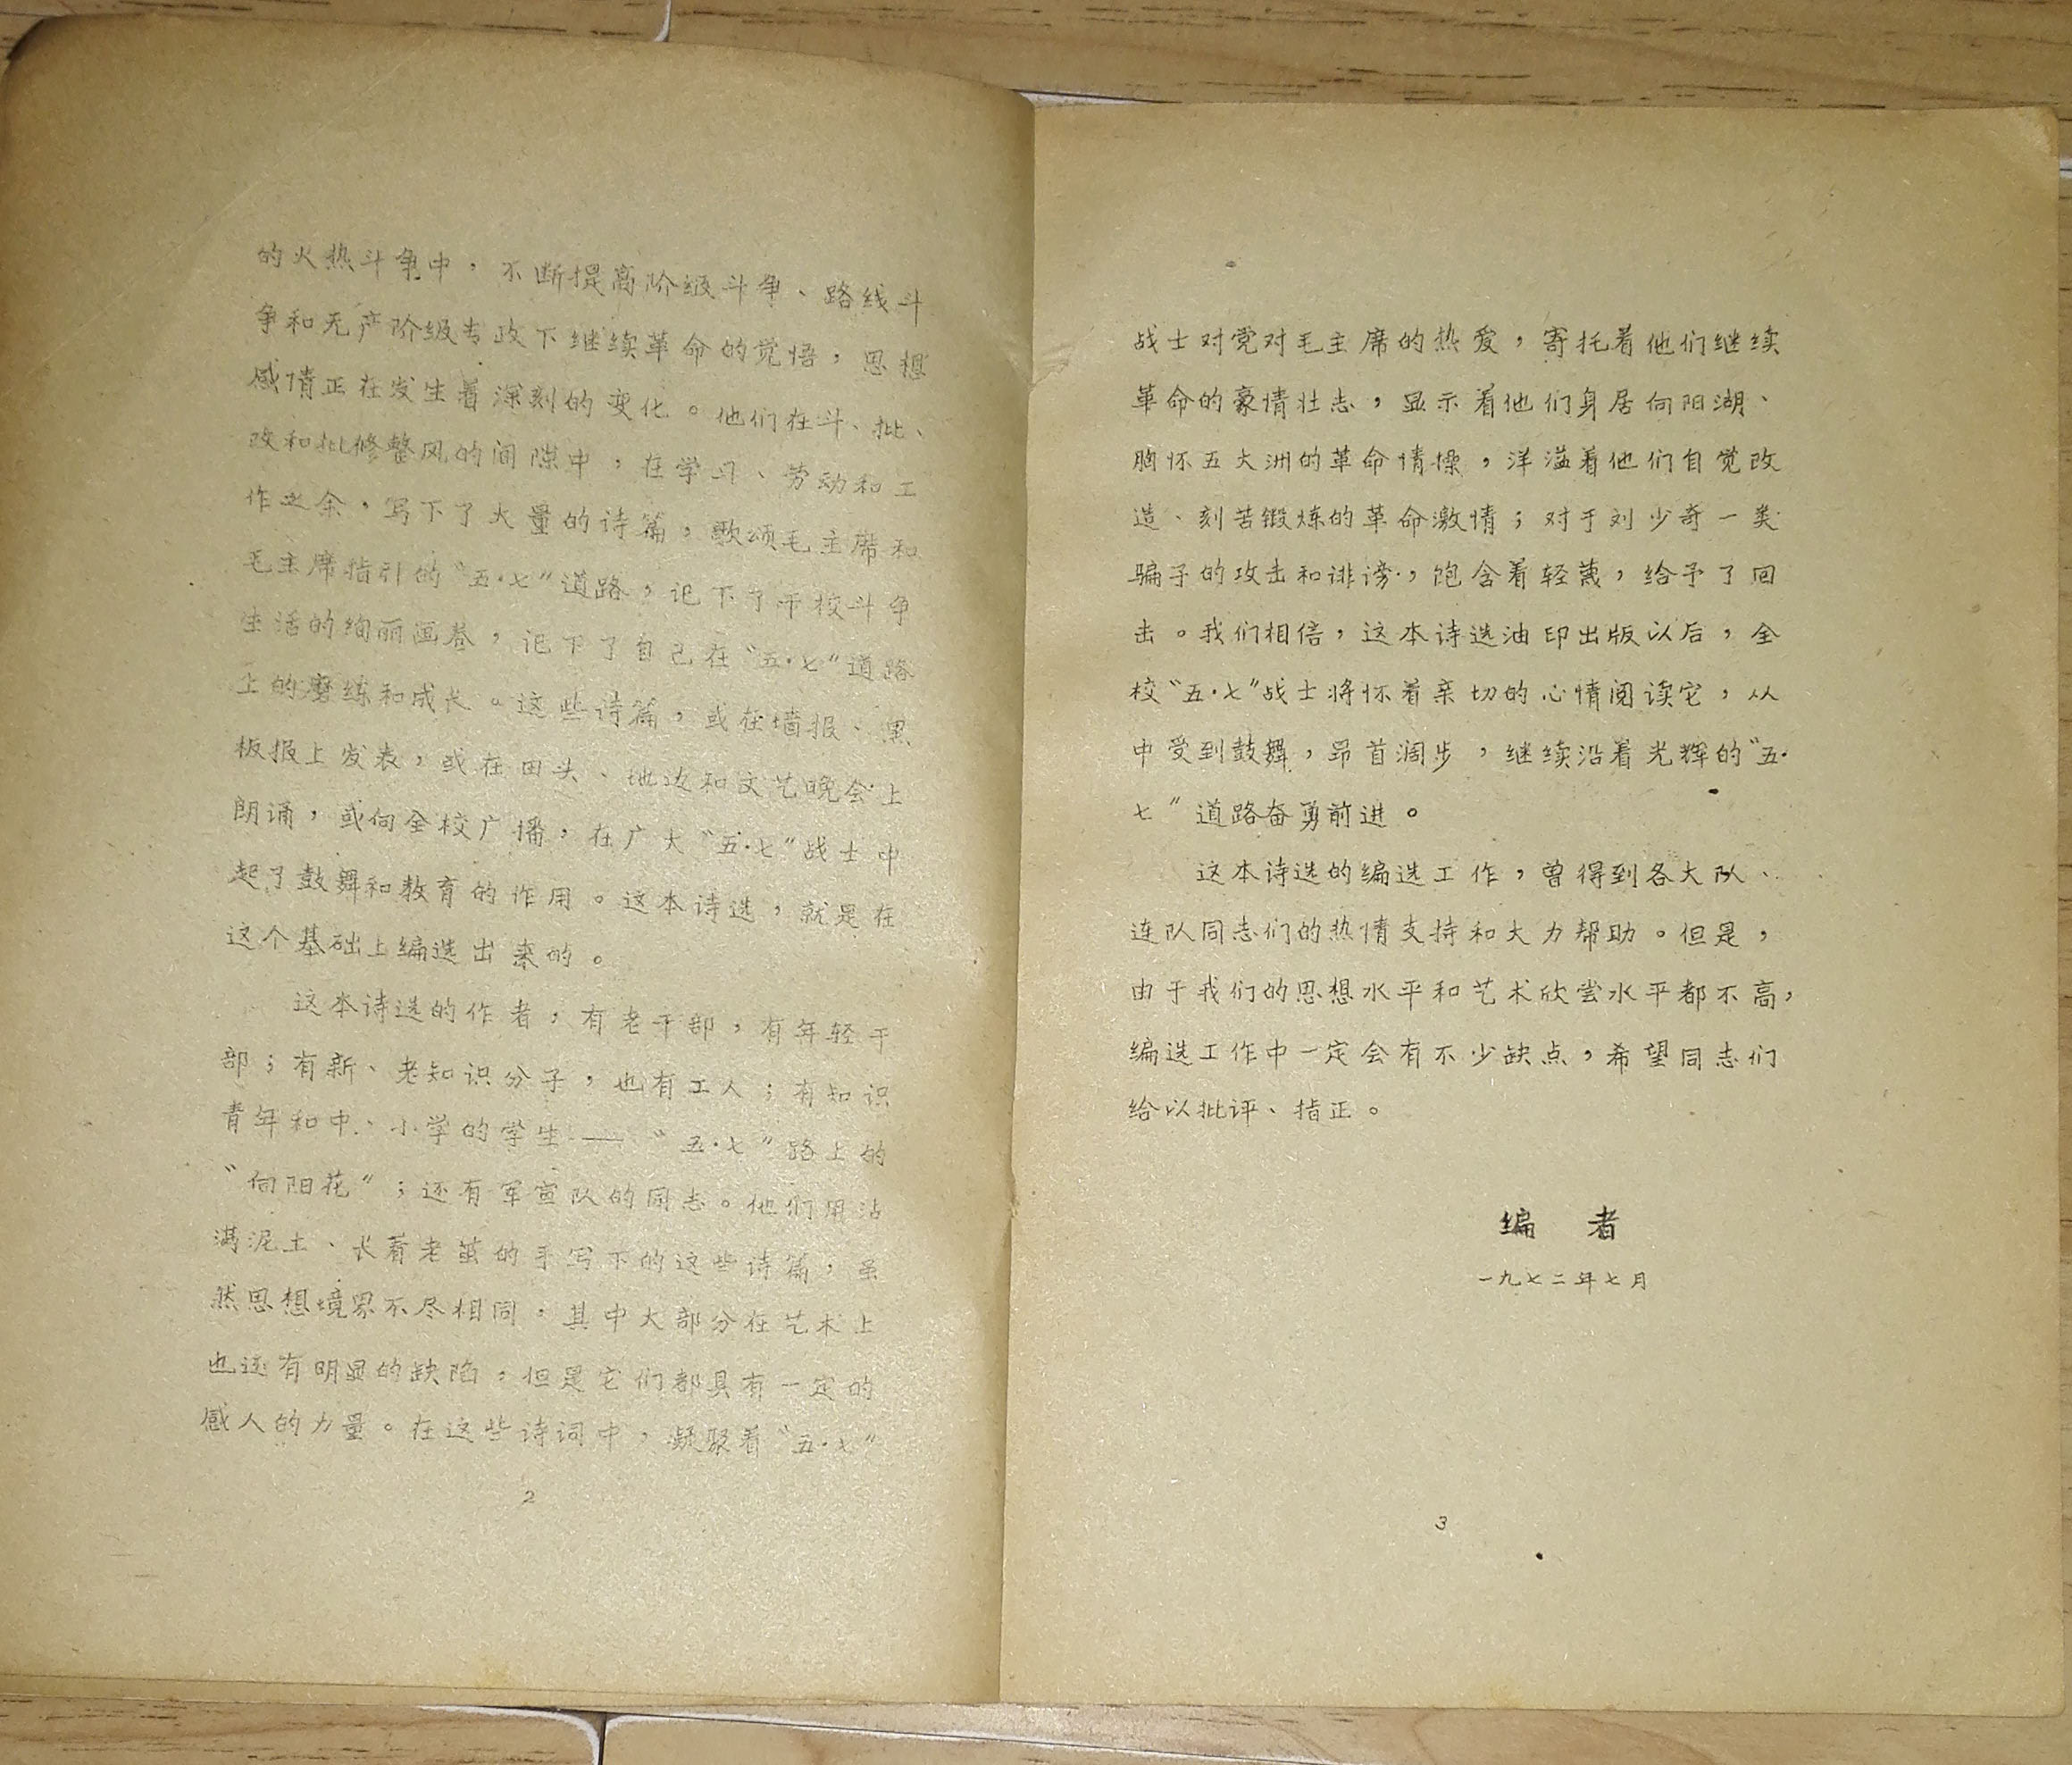 的火热斗争中，不断提高阶级斗争、路线斗
争和无产阶级专政下继续革命的觉悟，思想
感情正在发生着深刻的变化。他们在斗、批、
改和批修整风的间隙中，在学习、劳动和工
作之余，写下了大量的诗篇，歌颂毛主席和
毛主席指引的“五·七”道路，记下了干校斗争
生活的绚丽画卷，记下了自己在“五·七”道路
上的磨练和成长。这些诗篇，或在墙报、黑
板报上发表，或在田头、地边和文艺晚会上
朗诵，或向全校广播，在广大“五·七”战士中
起了鼓舞和教育的作用。这本诗选，就是在
这个基础上编选出来的。
这本诗选的作者，有老干部，有年轻干
部；有新、老知识分子，也有工人；有知识
青年和中、小学的学生——“五·七”路上的
“向阳花”；还有军宣队的同志。他们用沾
满泥土、长着老茧的手写下的这些诗篇，虽
然思想境界不尽相同，其中大部分在艺术上
也还有明显的缺陷，但是它们都具有一定的
感人的力量。在这些诗词中，凝聚着“五·七”
2
战士对党对毛主席的热爱，寄托着他们继续
革命的豪情壮志，显示着他们身居向阳湖、
胸怀五大洲的革命情操，洋溢着他们自觉改
造、刻苦锻炼的革命激情；对于刘少奇一类
骗子的攻击和诽谤，饱含着轻蔑，给予了回
击。我们相信，这本诗选油印出版以后，全
校“五·七”战士将怀着亲切的心情阅读它，从
中受到鼓舞，昂首阔步，继续沿着光辉的“五·
七”道路奋勇前进。
这本诗选的编选工作，曾得到各大队、
连队同志们的热情支持和大力帮助。但是，
由于我们的思想水平和艺术欣尝水平都不高，
编选工作中一定会有不少缺点，希望同志们
给以批评、指正。
编 者
一九七二年七月
3